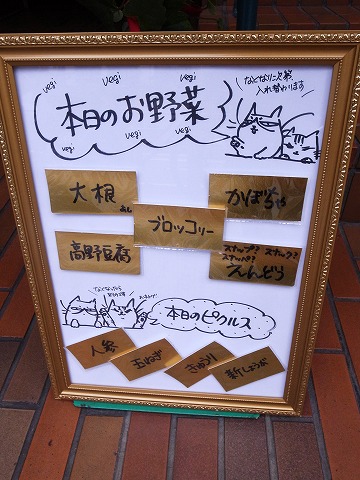 vegi
vegi
vegi
本日のお野菜
vegi
vegi
vegi
なくなり次第、
入れ替わります
大根
かぼちゃ
ブロッコリー
高野豆腐
スナップ? スナック?
スナッペ?
えんどう
なくなったら
本日のピクルス
人参
玉ねぎ
きゅうり
新しょうが